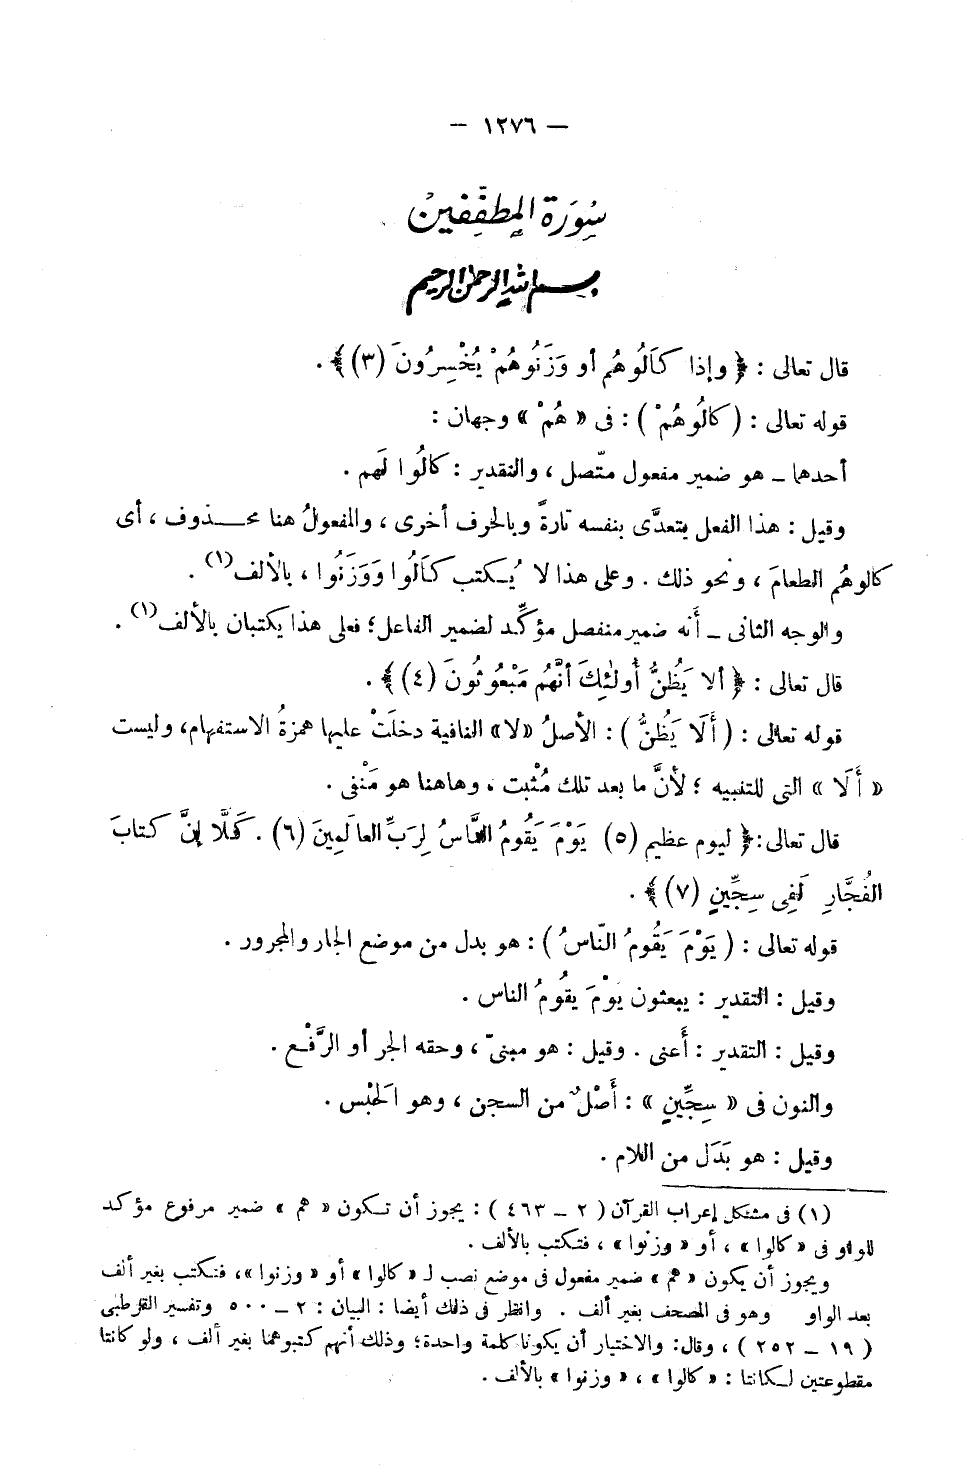 — ١٢٧٦ —
سُورَة المطفِّفين
بسم الله الرحمن الرحيم
قال تعالى : ﴿ وإذا كَالُوهُم أو وَزَنُوهُمْ يُخْسِرُونَ (٣)﴾ .
قوله تعالى : ( كالُوهُمْ ) : فى « هُمْ » وجهان :
أحدهما ـ هو ضمير مفعول متّصل ، والتقدير : كالُوا لَهم .
وقيل : هذا الفعل يتعدَّى بنفسه تارةً وبالحرف أخرى ، والمفعولُ هنا محـــذوف ، أى
كالوهُم الطعامَ ، ونحو ذلك . وعلى هذا لا يُـكتب كَالُوا وَوَزَنُوا ، بالألف(١) .
والوجه الثانى ـ أنه ضمير منفصل مؤكِّد لضمير الفاعل؛ فعلى هذا يكتبان بالألف(١) .
قال تعالى : ﴿ ألا يَظُنُّ أُولٰئِكَ أنَّهُم مَبْعُوثُونَ (٤)﴾ .
قوله تعالى : ( أَلَا يَظُنُّ ) : الأصلُ «لا» النافية دخلَتْ عليها همزةُ الاستفهام، وليست
« أَلَا » التى للتنبيه ؛ لأنَّ ما بعد تلك مُثْبت ، وهاهنا هو مَنْفى .
قال تعالى:﴿ ليوم عظيم (٥) يَوْمَ يَقُومُ النَّاسُ لِرَبِّ العالَمِينَ (٦) . كَلَّا إنَّ كتابَ
الفُجَّارِ لَفِى سِجِّينٍ (٧)﴾ .
قوله تعالى : ( يَوْمَ يَقُومُ النّاسُ ) : هو بدل من موضع الجار والمجرور .
وقيل : التقدير : يبعثون يَوْمَ يقُومُ الناس .
وقيل : التقدير : أَعنى . وقيل : هو مبنىّ ، وحقه الجر أو الرَّفْـع .
والنون فى « سِجِّينٍ » : أَصْلٌ من السجن ، وهو الحَبْس .
وقيل : هو بَدَل من اللام .
(١) فى مشكل إعراب القرآن ( ٢ ـ ٤٦٣ ) : يجوز أن تـكون « هم » ضمير مرفوع مؤكد
للواو فى « كالوا » ، أو « وزنوا » ، فتكتب بالألف .
ويجوز أن يكون « هم » ضمير مفعول فى موضع نصب لـ « كالوا » أو « وزنوا »، فتكتب بغير ألف
بعد الواو وهو فى المصحف بغير ألف . وانظر فى ذلك أيضا : البيان : ٢ ـ ٥٠٠ وتفسير القرطبى
( ١٩ ـ ٢٥٢ ) ، وقال: والاختيار أن يكونا كلمة واحدة؛ وذلك أنهم كتبوهما بغير ألف ، ولو كانتا
مقطوعتين لـكانتا : « كالوا » ، « وزنوا » بالألف .